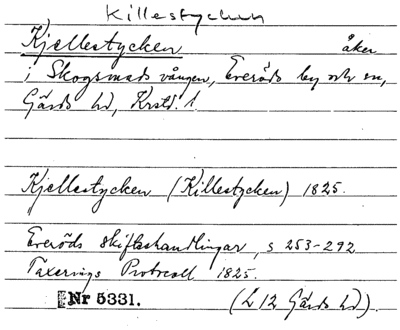 Killestycken
Kjellestycken åker
i Skogsmads vången, Everöds by och sn,
Gärds hd, Krstd. l.
Kjellestycken (Killestycken) 1825.
Everöds skifteshandlingar, s 253-292
Taxerings Protocoll 1825.
Nr 5331. (L 12 Gärds hd).